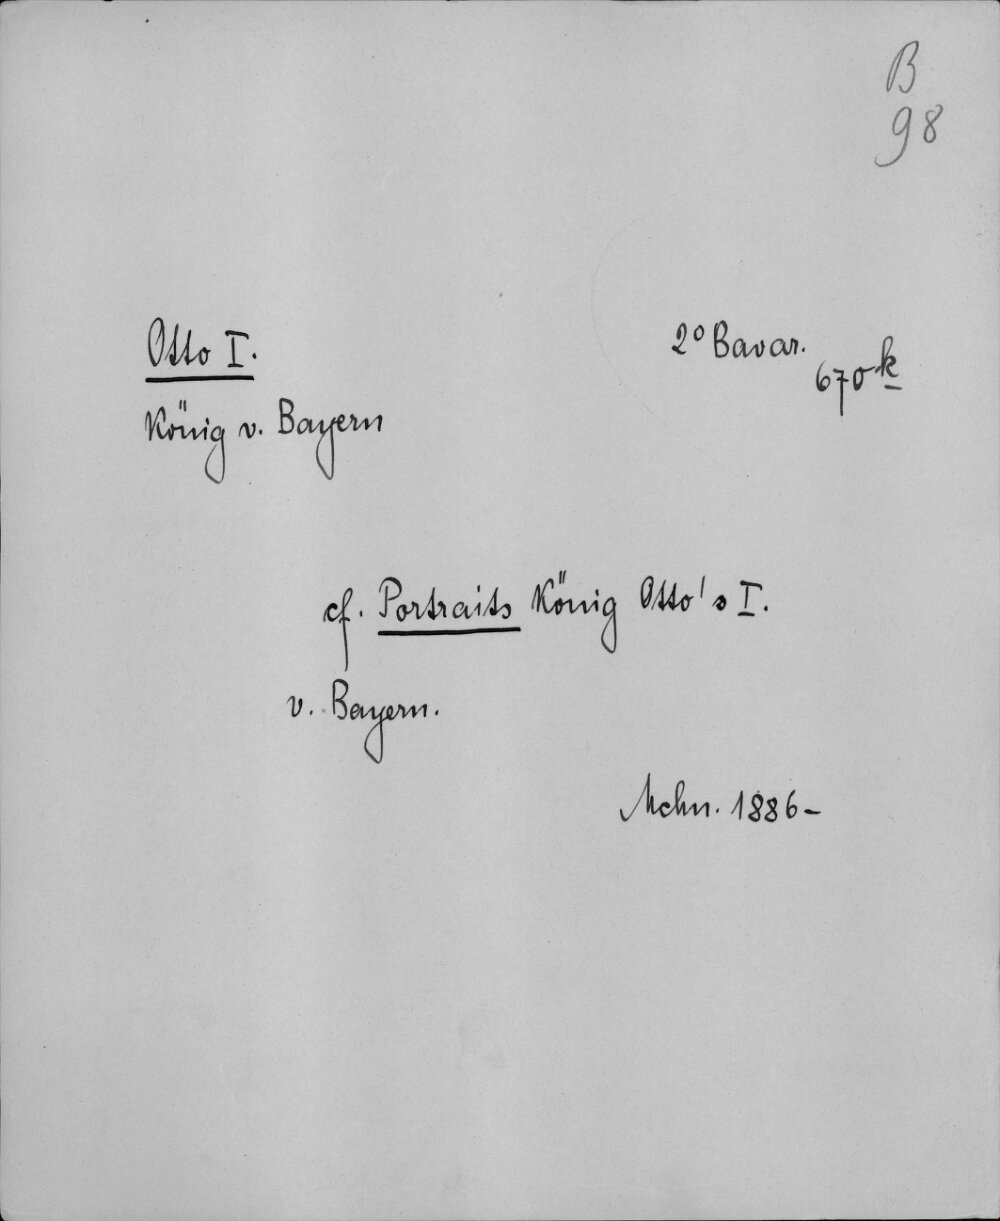 B
98
Otto I.
2° Bavar.
670 k
König v. Bayern
cf. Portraits König Otto's I.
v. Bayern.
Mchn. 1886-